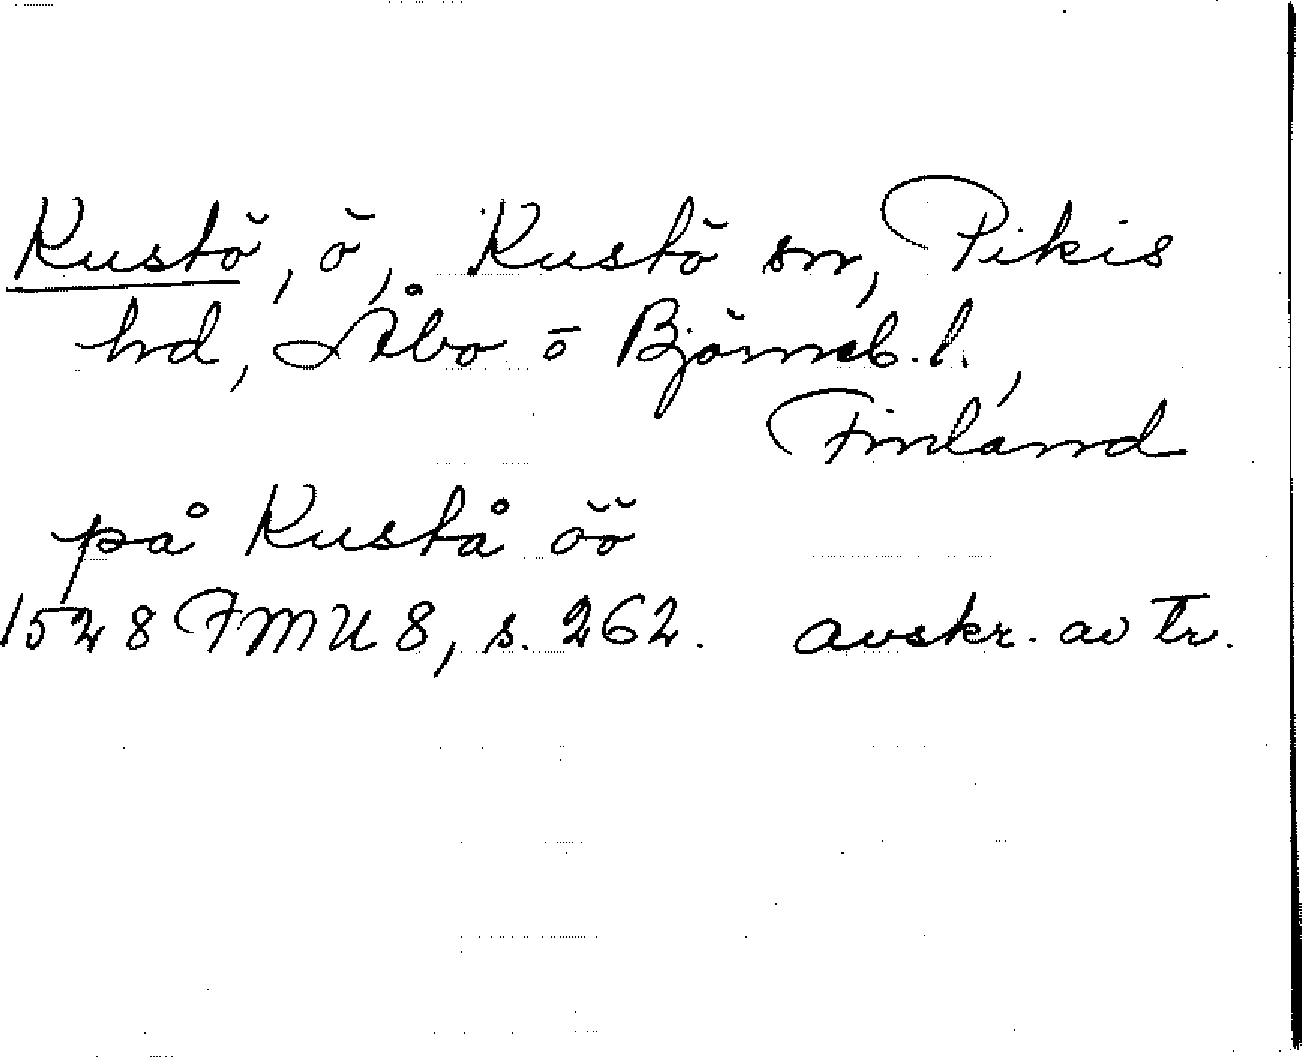 Kustö, ö, Kustö sn, Pikis
hd, Åbo o Björneb. l.,
Finland
på Kustå öö
1528 FMU 8, s. 262. avskr. av Tr.